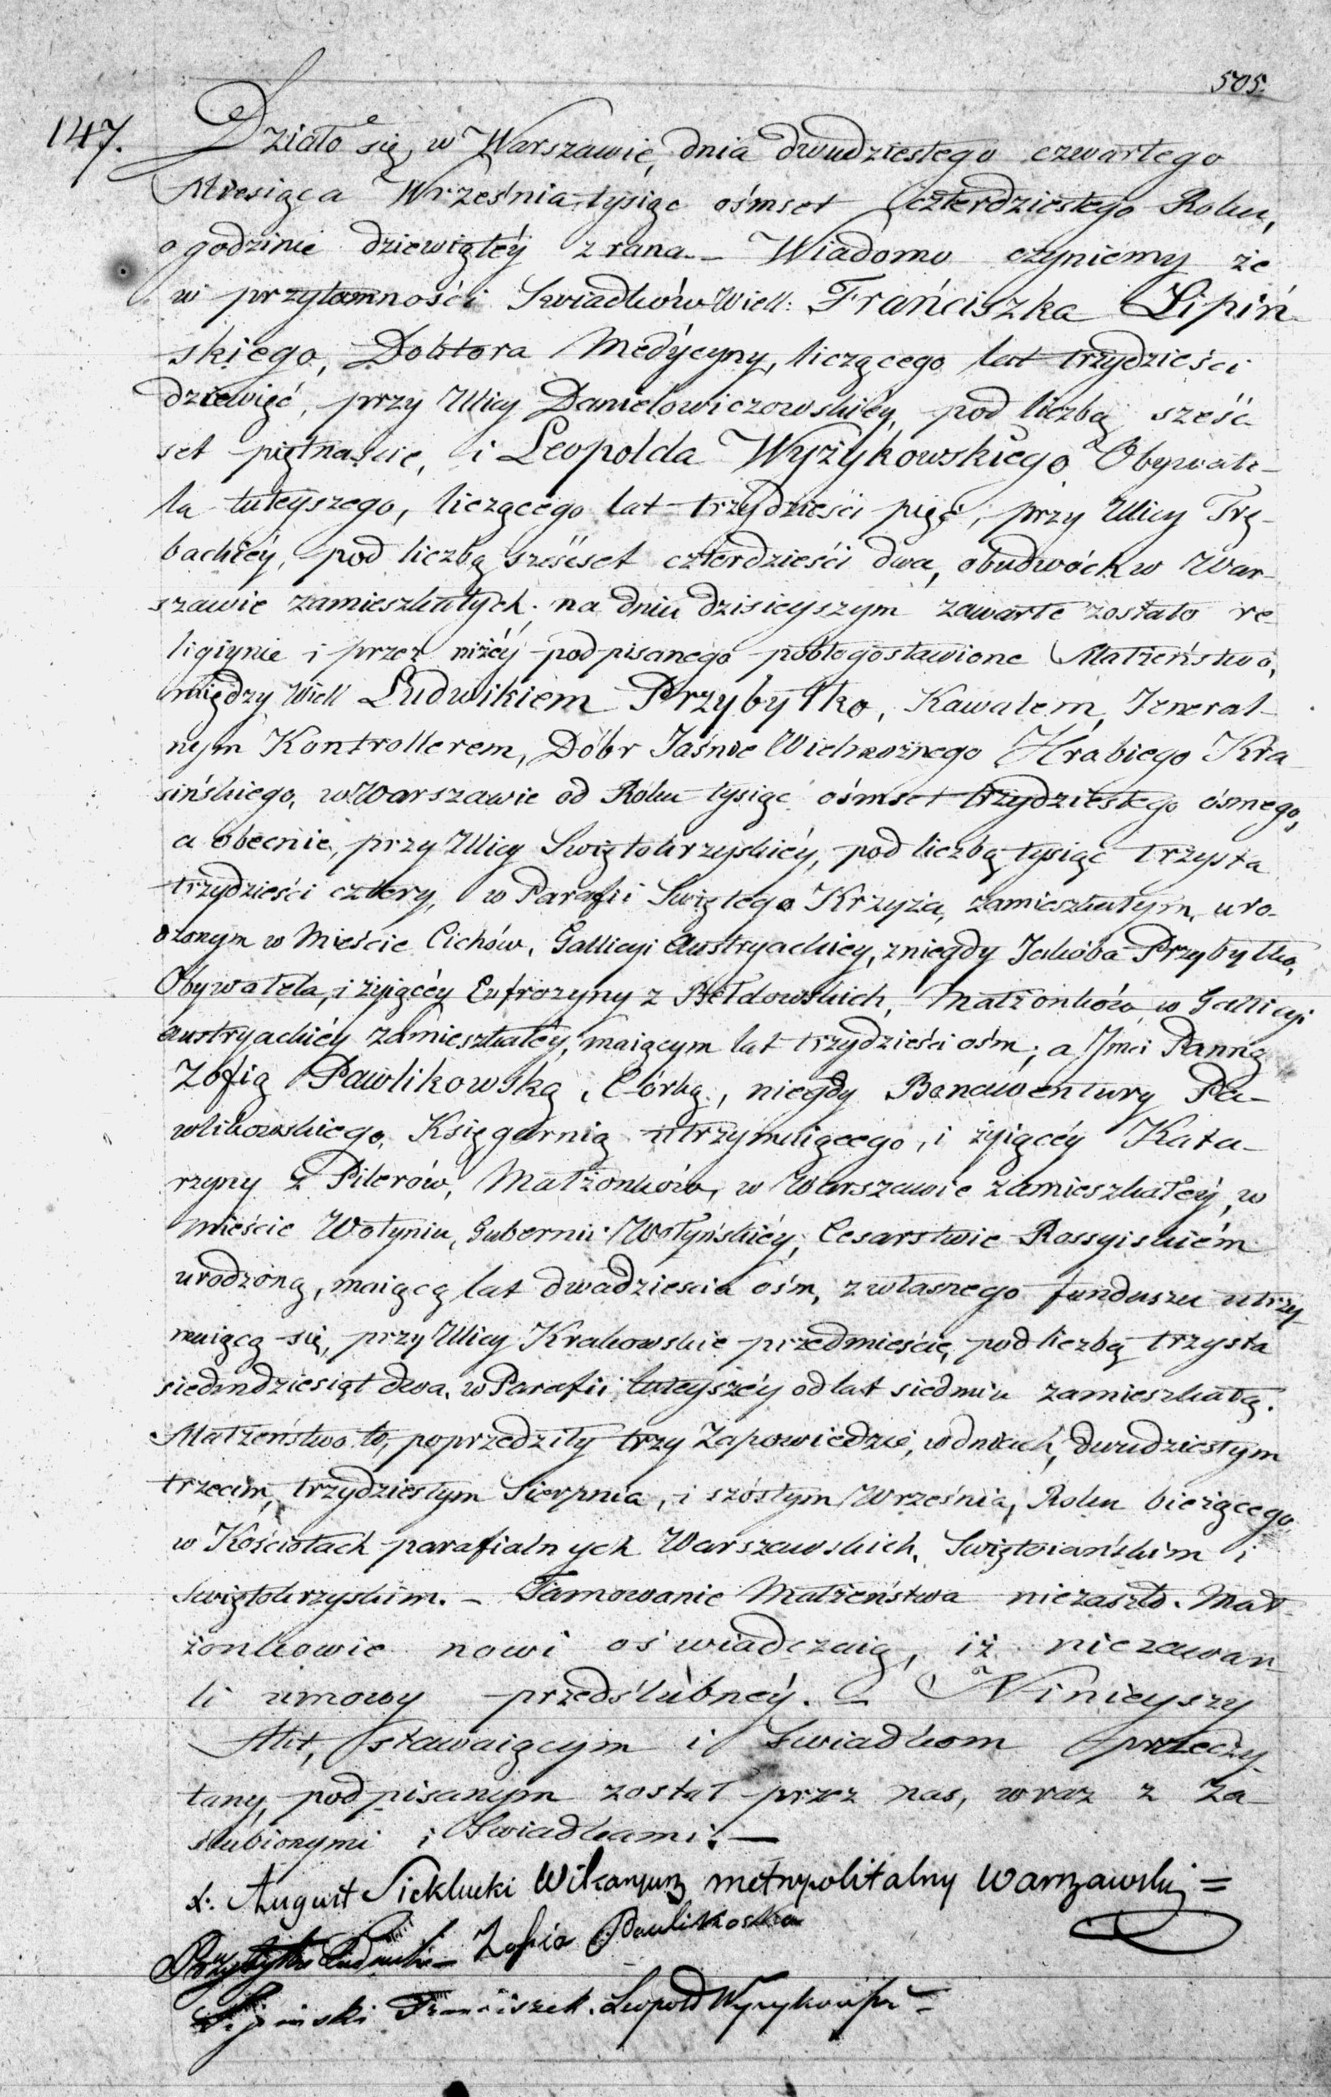 505.
147. Działo się w Warszawie, dnia dwudziestego czwartego
Miesiąca Września tysiąc ośmset czterdziestego Roku,
o godzinie dziewiątéy z rana. – Wiadomo czyniemy że
w przytomności Swiadków Wiell: Frańciszka Lipiń-
skiego, Doktora Medycyny, liczącego lat trzydzieści
dziewięć, przy Ulicy Danielowiczowskiéy, pod liczbą sześć-
set piętnaście, i Leopolda Wyżykowskiego Obywate-
la tuteyszego, liczącego lat trzydzieści pięć, przy Ulicy Trę-
backiéy, pod liczbą sześćset czterdzieści dwa, obudwóch w War-
szawie zamieszkałych; na dniu dzisieyszym zawarte zostało re-
ligiynie i przez niżéy podpisanego pobłogosławione Małżeństwo,
między Wiell Ludwikiem Przybyłko, Kawalem, Jeneral-
nym Kontrollerem, Dóbr Jaśnie Wielmożnego Hrabiego Kra-
sińskiego, w Warszawie od Roku tysiąc ośmset trzydziestego ósmego,
a obecnie, przy Ulicy Swiętokrzyskiéy, pod liczbą tysiąc trzysta
trzydzieści cztery, w Parafii Swiętego Krzyża, zamieszkałym, uro-
dzonym w Mieście Cichów, Gallicyi Austryackiey, z niegdy Jakóba Przybyłko,
Obywatela, i żyiącéy Eufrozyny z Bełdowskich, Małżonków, w Gallicyi
Austryackiéy zamieszkałéy, maiącym lat trzydzieści ośm; a Jmci Panną
Zofią Pawlikowską, Córką, niegdy Bonawentury Pa-
wlikowskiego, Księgarnią utrzymuiącego, i żyiącéy Kata-
rzyny z Pilerów, Małżonków, w Warszawie zamieszkałéy, w
mieście Wołyniu, Gubernii Wołyńskiéy, Cesarstwie Rossyiskiém
urodzoną, maiącą lat dwadzieścia ośm, z własnego funduszu utrzy
muiącą się, przy Ulicy Krakowskie przedmieście, pod liczbą trzysta
siedmdziesiąt dwa, w Parafii tuteyszéy od lat siedmiu zamieszkałą.
Małżeństwo to, poprzedziły trzy Zapowiedzie, w dniach, dwudziestym
trzecim, trzydziestym Sierpnia, i szóstym Września, Roku bieżącego
w Kościołach parafialnych Warszawskich, Swiętoiańskim i
Swiętokrzyskim. – Tamowanie Małżeństwa niezaszło. Mał-
żonkowie nowi oświadczaią, iż niezawar-
li umowy przedślubnéy. – Ninieyszy
Akt, stawaiącym i Swiadkom przeczy-
tany, podpisanym został przez nas, wraz z Za-
ślubionymi i Swiadkami. –
X. August Sieklucki Wikaryusz metropolitalny Warszawski =
Przybyłko Ludwik – Zofia Pawlikoska
Lipinski Franciszek. Leopold Wyżykowski